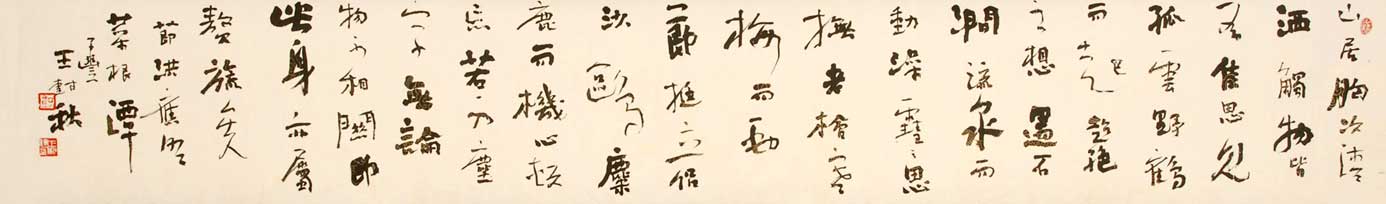 山居胸次清
洒觸物皆
有佳思見
孤雲野鶴
而起超絕
之想遇石
澗流泉而
動澡雪之思
撫老檜寒
梅而勁
節挺立侶
沙鷗麋
鹿而機心頓
忘若入塵
寰無論
物不相關即
此身亦屬
贅旒矣
節洪應明
菜根譚
王秋